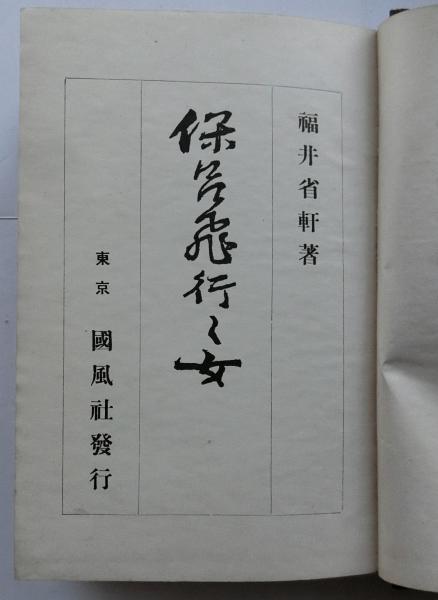 福井省軒著
保呂飛行く女
東京 國風社發行